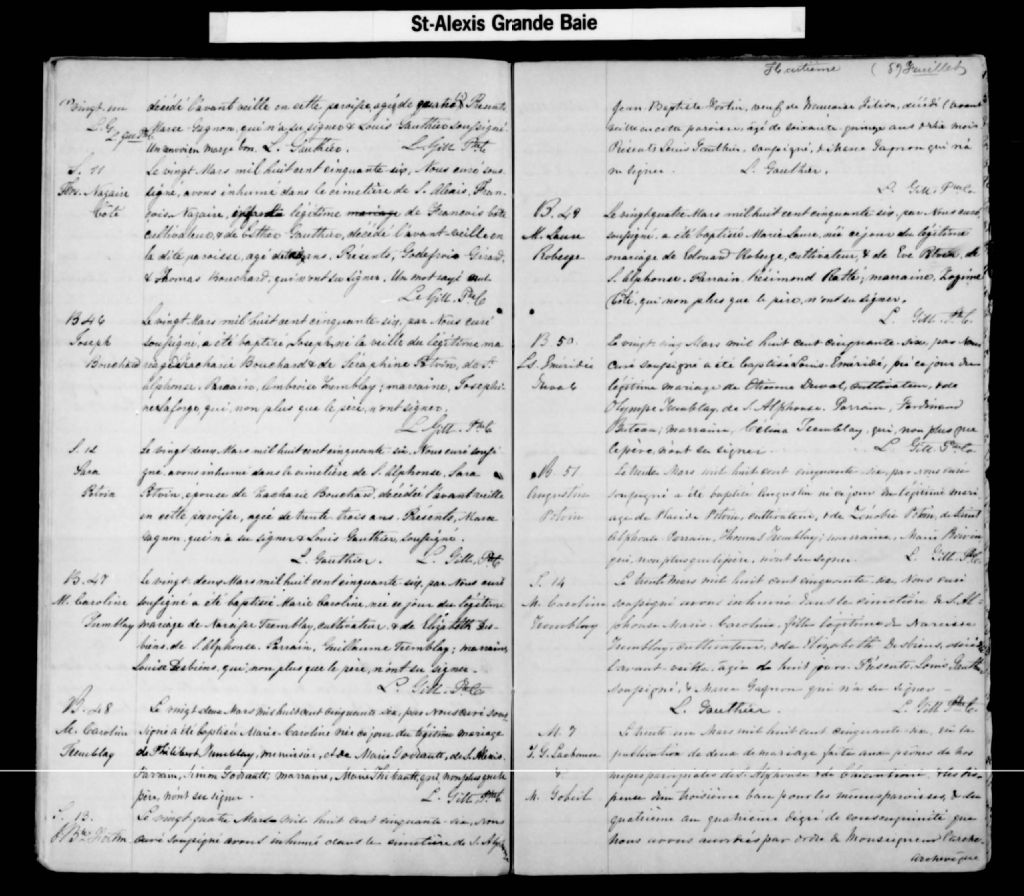 St-Alexis Grande Baie
vingt un décédé l'avant veille en cette paroisse, agé de quatre Présents
Marce Gagnon, qui n'a su signer & Louis Gauthier soussigné.
Un environ marge bon. L. Gauthier. L. Gill. Ptre C
S. 11 Le vingt Mars mil huit cent cinquante six, Nous curé sous-
Frs. Nazaire signé, avons inhumé dans le cimetière de S. Alexis, Fran-
Côté çois Nazaire, enfant légitime mariage de François Côté
cultivateur, & de Esther Gauthier, décédé l'avant veille en
la dite paroisse, agé de ans. Présents, Godefroie Girard,
& Thomas Bouchard, qui n'ont su signer. Un mot rayé nul.
L. Gill. Ptre C
B. 46 Le vingt Mars mil huit cent cinquante six, par Nous curé
Joseph soussigné, a été baptisé Joseph, né la veille du légitime ma
Bouchard riage de Zacharie Bouchard & de Séraphine Potvin, de S.
Alphonse. Parrain, Ambroise Tremblay; marraine, Josephi-
ne Laforge, qui, non plus que le père, n'ont signer.
L. Gill. Ptre C
S. 12 Le vingt deux Mars mil huit cent cinquante six. Nous curé soussi-
Sara gné, avons inhumé dans le cimetière de S. Alphonse, Sara
Potvin Potvin, epouse de Zacharie Bouchard, décédée l'avant veille
en cette paroisse, agée de trente trois ans. Présents, Marce
Gagnon, qui n'a su signer & Louis Gauthier, soussigné.
L. Gauthier. L. Gill. Ptre C
B. 47 Le vingt-deux Mars mil huit cent cinquante six, par Nous curé
M. Caroline soussigné a été baptisée Marie Caroline, née ce jour du légitime
Tremblay mariage de Narcisse Tremblay, cultivateur & de Elizabeth Des-
biens, de S. Alphonse. Parrain, Guillaume Tremblay; marraine,
Louise Desbiens, qui, non plus que le père, n'ont su signer.
L. Gill. Ptre C
B. 48 Le vingt deux Mars mil huit cent cinquante six, par Nous curé sous-
M. Caroline signé a été baptisée Marie Caroline née ce jour du légitime mariage
Tremblay de Philibert Tremblay, menuisier, et de Marie Godreault, de S. Alexis.
Parrain, Simon Godreault, marraine, Marie Thibeault, qui non plus que le
père, n'ont su signer. L. Gill. Ptre C
S. 13. Le vingt quatre Mars mil huit cent cinquante six, Nous
J. Bte Fortin curé soussigné avons inhumé dans le cimetière de S. Alph
Huitième (8e Feuillet)
Jean Baptiste Fortin, veuf de Filion, décédé l'avant
veille en cette paroisse, âgé de soixante quinze ans mois
Présents Louis Gauthier, soussigné, & Marce Gagnon qui n'a
su signer. L. Gauthier.
L. Gill. Ptre C.
B. 49 Le vingt quatre Mars mil huit cent cinquante six, par Nous curé
M. Laure soussigné, a été baptisée Marie Laure, née ce jour du légitime
Roberge mariage de Edouard Roberge, cultivateur, & de Eve Potvin, de
S. Alphonse. Parrain, Résimond Ratté; marraine,
Côté, qui non plus que le père, n'ont su signer.
L. Gill. Ptre C.
B. 50. Le vingt cinq Mars mil huit cent cinquante six, par Nous
Ls. Eméridé curé soussigné a été baptisé Louis Eméridé, né ce jour du
Duval légitime mariage de Etienne Duval, cultivateur, & de
Olympe Tremblay, de S. Alphonse. Parrain, Ferdinand
Boiteau; marraine, Célina Tremblay, qui, non plus que
le père, n'ont su signer. L. Gill. Ptre C
B. 51 Le trente Mars mil huit cent cinquante six, par nous curé
Augustin soussigné a été baptisé Augustin né ce jour du légitime mari-
Potvin age de Placide Potvin, cultivateur, & de Zénobie Potvin, de Saint
Alphonse Parrain, Thomas Tremblay; marraine, Marie Boivin
qui, non plus que le père, n'ont su signer. L. Gill. Ptre C.
S. 14 Le trente Mars mil huit cent cinquante six, Nous curé
M. Caroline soussigné avons inhumé dans le cimetière de S. Al-
Tremblay phonse Marie Caroline, fille légitime de Narcisse
Tremblay, cultivateur, & de Elizabeth Desbiens, décédée
l'avant veille, agée de huit jours. Présents, Louis Gauth
soussigné, & Marce Gagnon qui n'a su signer -
L. Gauthier. L. Gill. Ptre C.
M. 7 Le trente un Mars mil huit cent cinquante six, vu la
publication de deux bans de mariage faite aux prônes de nos
& messes paroissiales de S. Alphonse & de , & la dis-
M. Gobeil pense d'un troisième ban pour les mêmes paroisses, & du
quatrième au quatrième degré de consanguinité que
nous avons par ordre de Monseigneur l'arche-
archevêque